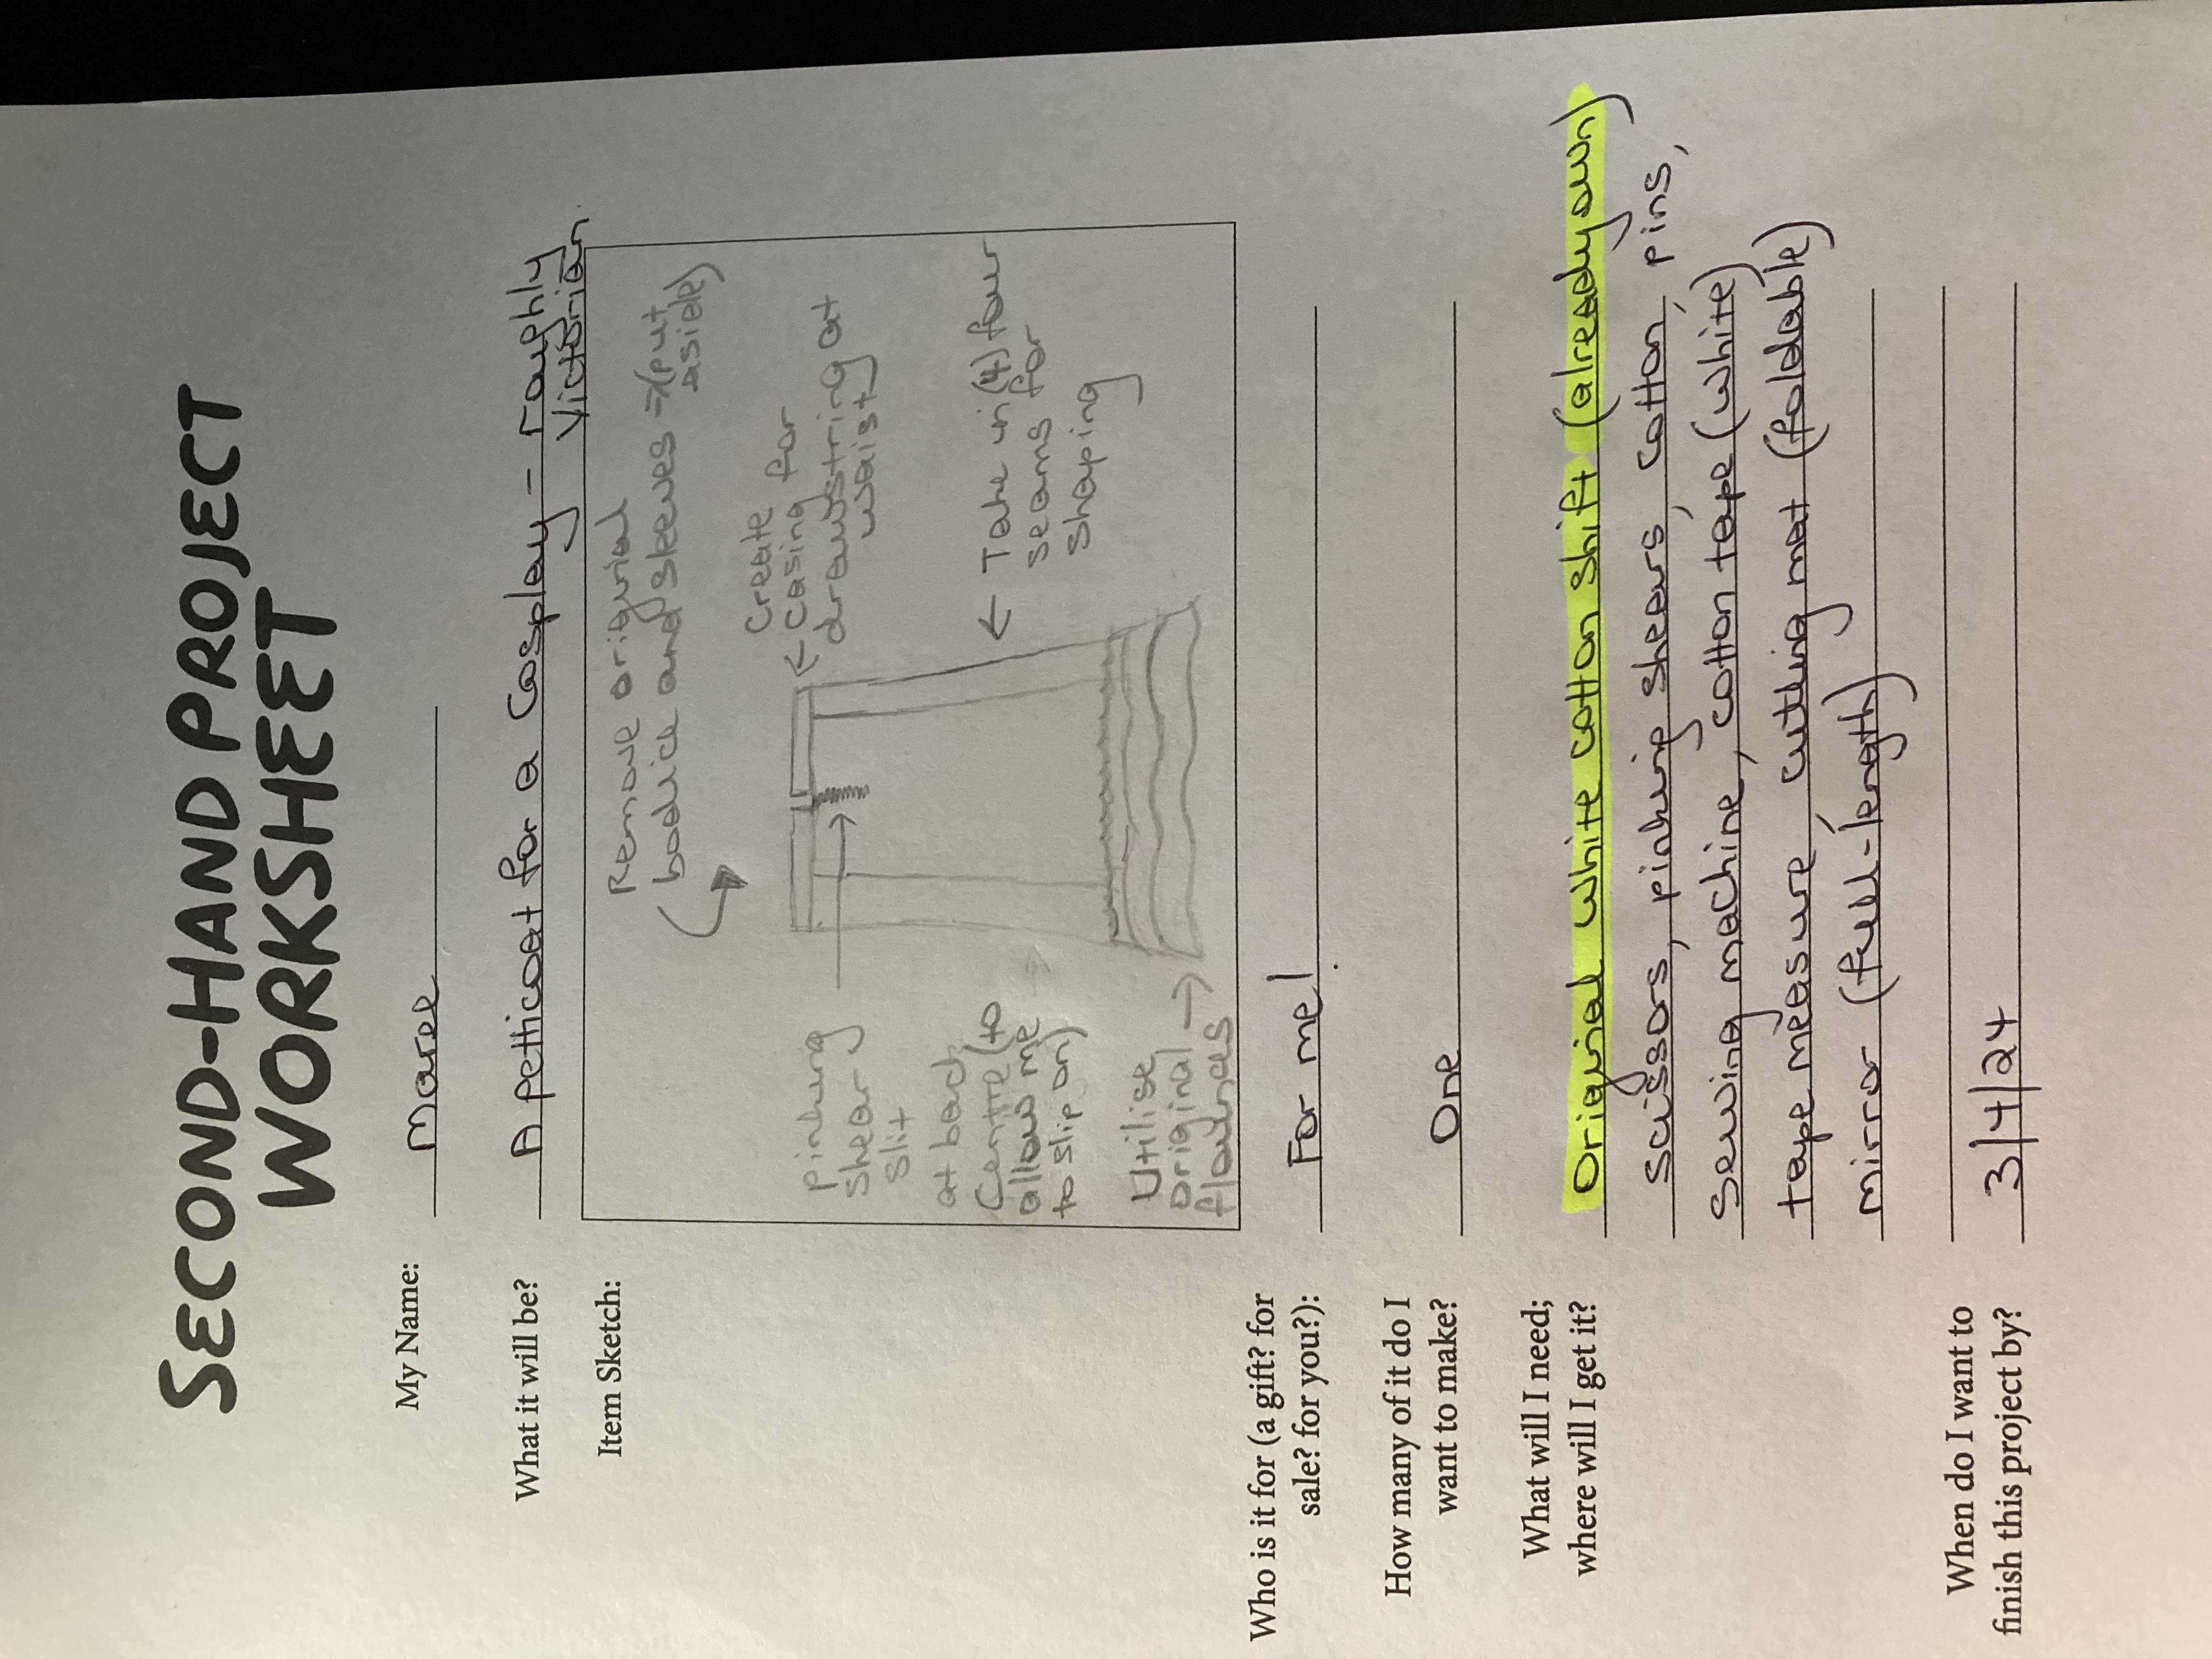 SECOND-HAND PROJECT
WORKSHEET
My Name:
Maree
What it will be?
A petticoat for a Cosplay - roughly
Victorian
Item Sketch:
Remove original
bodice and sleeves → (put
aside)
Create
← casing for
drawstring at
waist
Pinking
Shear
Slit
at back
Centre (to
allow me
to slip on)
← Take in (4) four
seams for
shaping
Utilise
original →
flounces
Who is it for (a gift? for
sale? for you?):
For me!
How many of it do I
want to make?
One
What will I need;
where will I get it?
Original white cotton shift (already own)
Scissors, pinking shears, cotton, pins,
Sewing machine, cotton tape (white)
tape measure, cutting mat (foldable)
Mirror (full-length)
When do I want to
finish this project by?
3/4/24